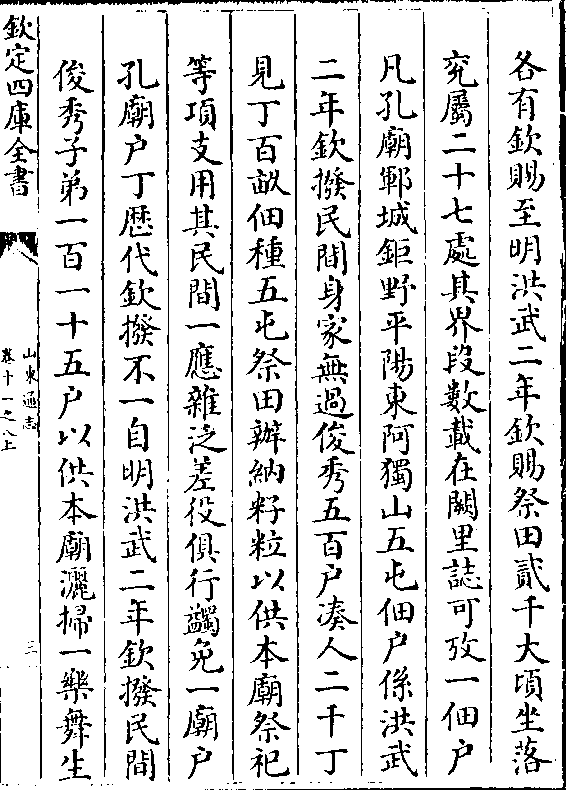 各有欽賜至明洪武二年欽賜祭田貳千大頃坐落
兖屬二十七處其界段數載在闕里誌可攷一佃户
凡孔廟鄆城鉅野平陽東阿獨山五屯佃户係洪武
二年欽撥民間身家無過俊秀五百户凑人二千丁
見丁百畝佃種五屯祭田辦納籽粒以供本廟祭祀
等項支用其民間一應雜泛差役俱行蠲免一廟户
孔廟户丁歷代欽撥不一自明洪武二年欽撥民間
俊秀子弟一百一十五户以供本廟灑掃一樂舞生
欽定四庫全書
山東通志
卷十一之八上
三